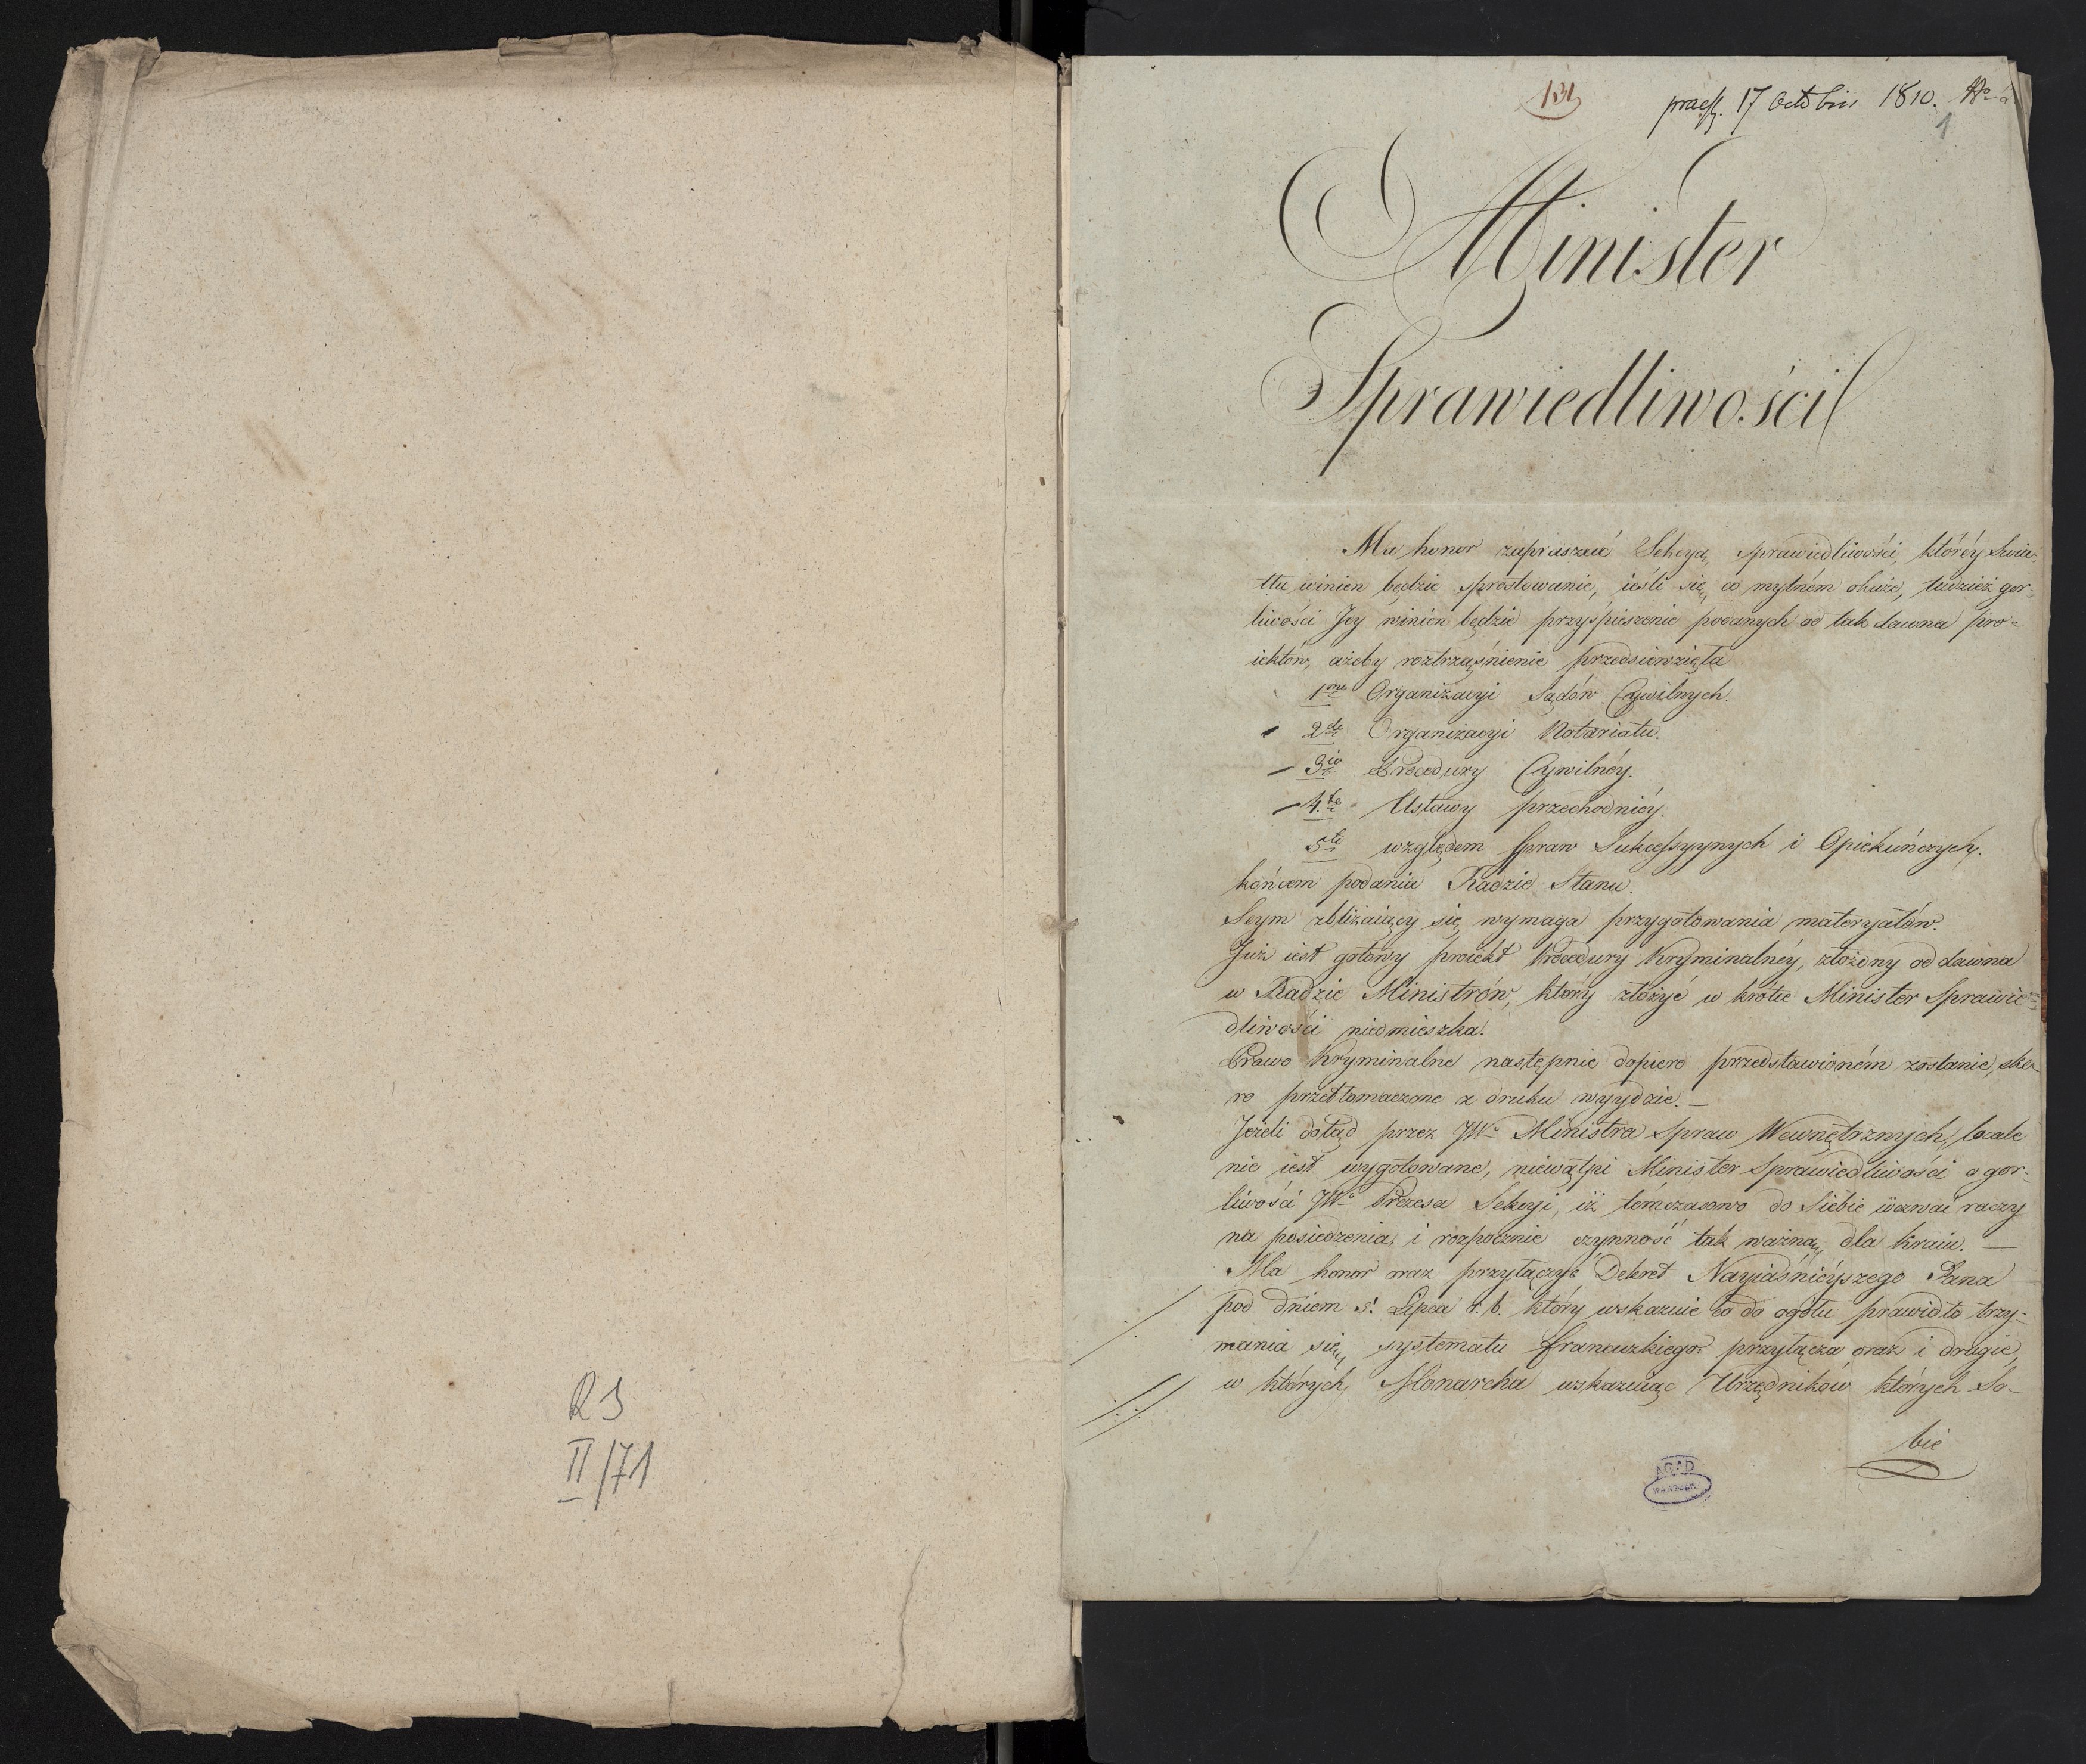 R S
II/71
131
praes. 17 Octobris 1810.
1
Minister
Sprawiedliwości
Ma honor zapraszać Sekcyą sprawiedliwości, któréy świa-
tłu winien będzie sprostowanie, ieśli się co mylném okaże, tudzież gor-
liwości Jey winien będzie przyśpieszenie podanych od tak dawna pro-
iektów, ażeby roztrząśnienie przedsiewzięła
1mo Organizacyi Sądów Cywilnych.
2do Organizacyi Notariatu.
3io Procedury Cywilnéy.
4to Ustawy przechodniéy.
5to względem spraw Sukcessyynych i Opiekuńczych.
końcem podania Radzie Stanu.
Seym zbliżaiący się wymaga przygotowania materyałów.
Już iest gotowy proiekt Procedury Kryminalnéy, złożony od dawna
w Radzie Ministrów, który złożyć w krótce Minister Sprawie-
dliwości nieomieszka.
Prawo Kryminalne następnie dopiero przedstawioném zostanie, sko-
ro przetłomaczone z druku wyydzie. —
Jeżeli dotąd przez JW. Ministra Spraw Wewnętrznych, locale
nie iest wygotowane, niewątpi Minister Sprawiedliwości o gor-
liwości JW. Prezesa Sekcyi, iż témczasowo do Siebie wezwać raczy
na posiedzenia, i rozpocznie czynność tak ważną dla Kraiu. —
Ma honor oraz przyłączyć Dekret Nayiaśniéyszego Pana
pod dniem Lipca r. b. który wskazuie co do ogółu prawidło trzy-
mania się systematu francuzkiego: przyłącza oraz i drugie,
w których Monarcha wskazuiąc Urzędników których So-
bie
AGAD
WARSZAWA